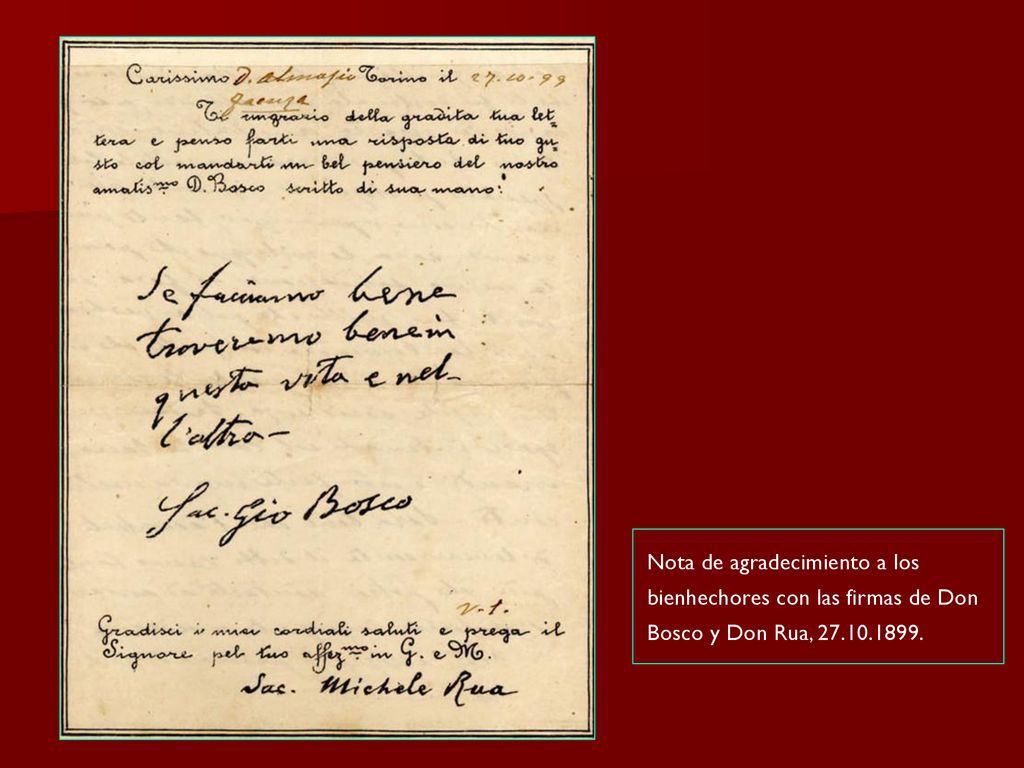 Carissimo D. Torino il 27.10.99
Ti ringrazio della gradita tua let-
tera e penso farti una risposta di tuo gu-
sto col mandarti un bel pensiero del nostro
amatismo D. Bosco scritto di sua mano:
Se facciamo bene
troveremo bene in
questa vita e nel-
l'altra-
Sac. Gio Bosco
Gradisci i miei cordiali saluti e prega il
Signore pel tuo affezmo in G. e M.
Sac. Michele Rua
Nota de agradecimiento a los
bienhechores con las firmas de Don
Bosco y Don Rua, 27.10.1899.